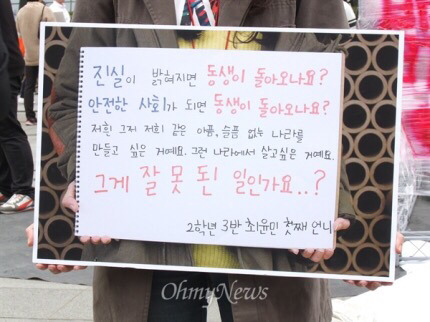 진실이 밝혀지면 동생이 돌아오나요?
안전한 사회가 되면 동생이 돌아오나요?
저흰 그저 저희 같은 아픔, 슬픔 없는 나라를
만들고 싶은 거예요. 그런 나라에서 살고싶은 거예요.
그게 잘 못 된 일인가요..?
2학년 3반 최윤민 첫째 언니
OhmyNews